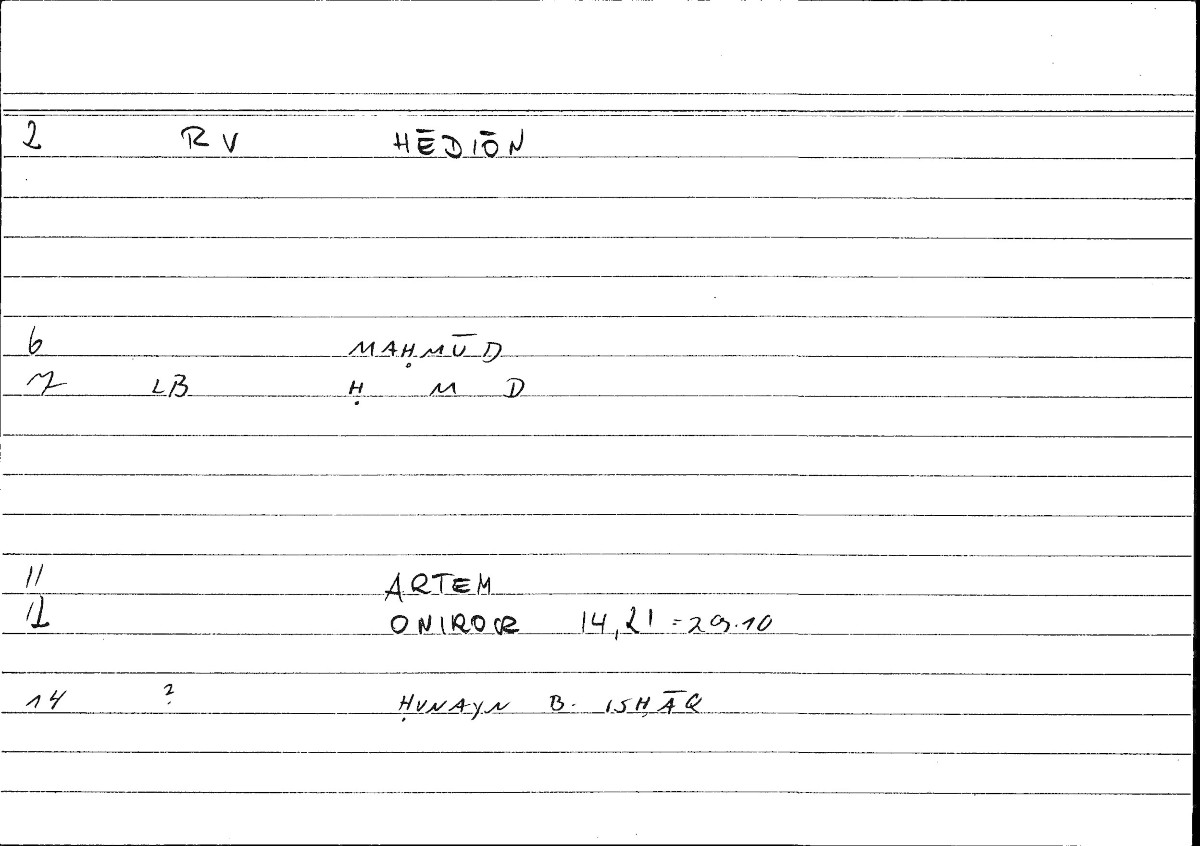 2 RV HĒDIŌN
6 MAḤMŪD
7 LB Ḥ M D
11 ARTEM
12 ONIROCR 14,21 = 29.10
14 ? ḤUNAYN B. ISḤĀQ